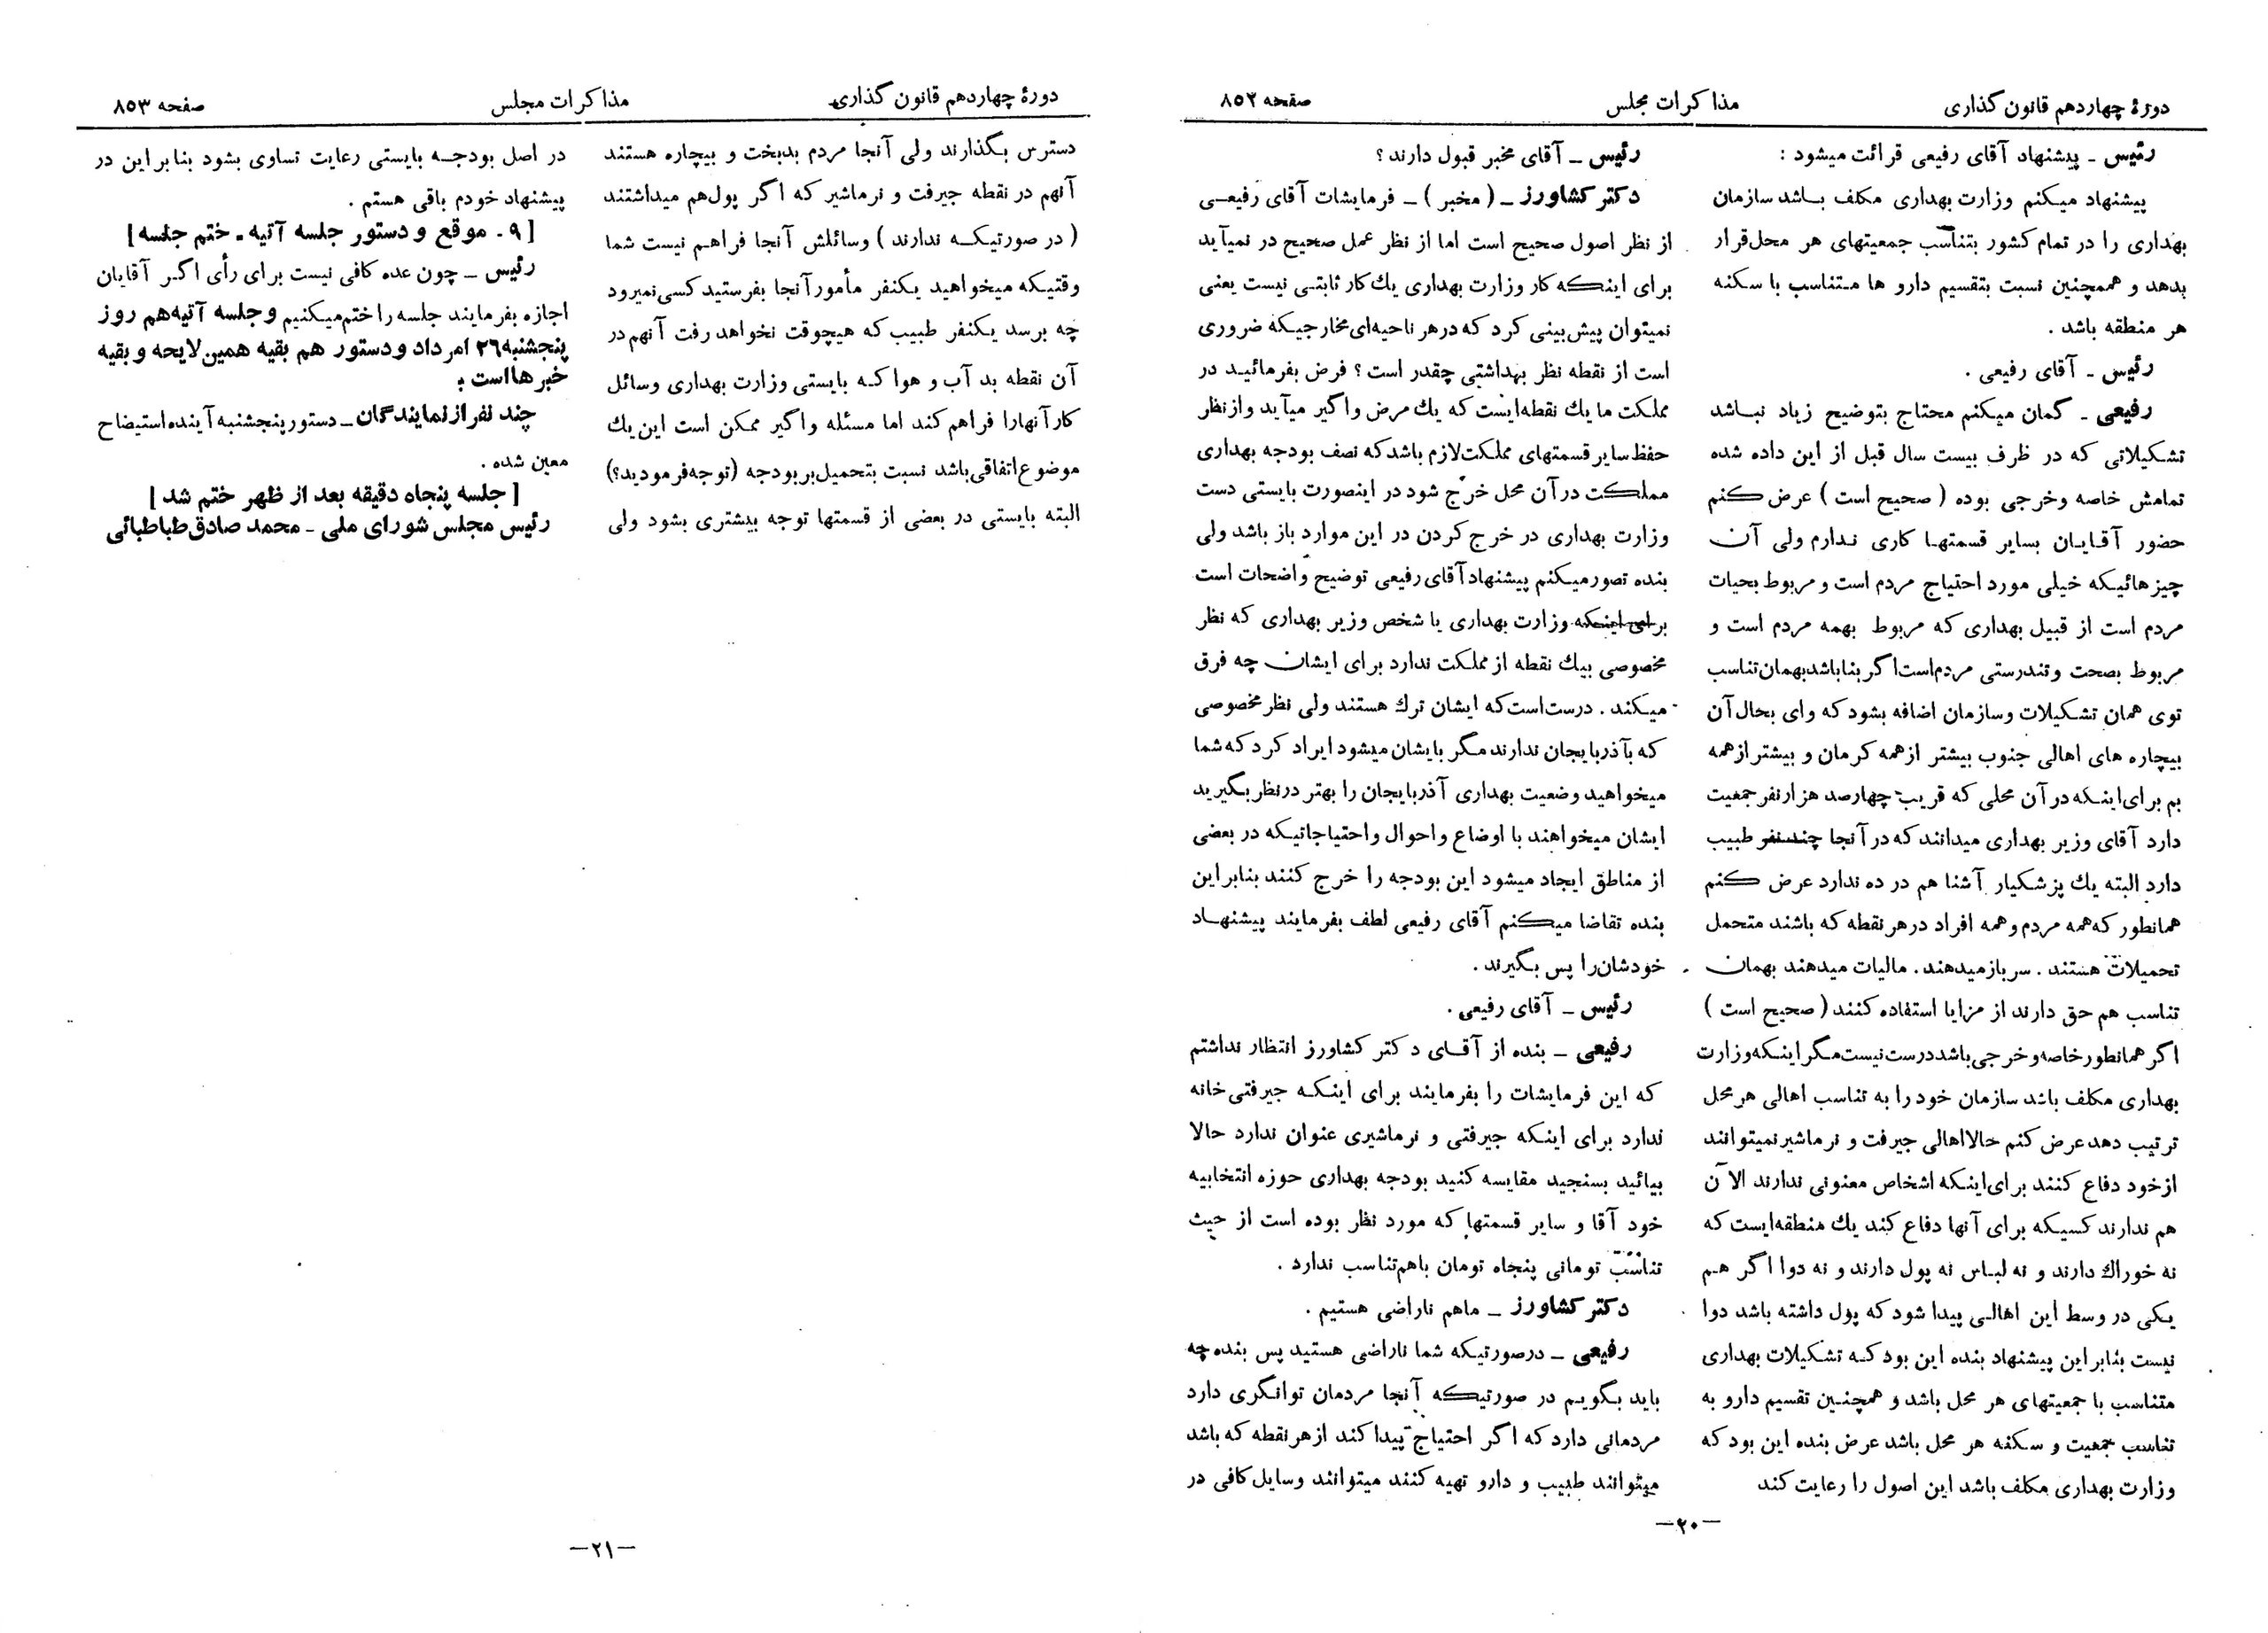 دورهٔ چهاردهم قانون گذاری
مذاکرات مجلس
صفحه ۸۵۲
رئیس ـ پیشنهاد آقای رفیعی قرائت میشود :
پیشنهاد میکنم وزارت بهداری مکلف باشد سازمان
بهداری را در تمام کشور بتناسب جمعیتهای هر محل قرار
بدهد و همچنین نسبت بتقسیم دارو ها متناسب با سکنه
هر منطقه باشد .
رئیس ـ آقای رفیعی .
رفیعی ـ گمان میکنم محتاج بتوضیح زیاد نباشد
تشکیلاتی که در ظرف بیست سال قبل از این داده شده
تمامش خاصه وخرجی بوده ( صحیح است ) عرض کنم
حضور آقایان بسایر قسمتها کاری ندارم ولی آن
چیزهائیکه خیلی مورد احتیاج مردم است و مربوط بحیات
مردم است از قبیل بهداری که مربوط بهمه مردم است و
مربوط بصحت وتندرستی مردم‌است‌اگر بنا‌باشد‌بهمان‌تناسب
توی همان تشکیلات وسازمان اضافه بشود که وای بحال آن
بیچاره های اهالی جنوب بیشتر ازهمه کرمان و بیشتر ازهمه
بم برای‌اینکه در آن محلی که قریب چهارصد هزار نفر جمعیت
دارد آقای وزیر بهداری میدانند که در آنجا چند نفر طبیب
دارد البته یك پزشکیار آشنا هم در ده ندارد عرض کنم
همانطور که‌همه مردم وهمه افراد درهر نقطه که باشند متحمل
تحمیلات هستند . سرباز میدهند . مالیات میدهند بهمان
تناسب هم حق دارند از مزایا استفاده کنند ( صحیح است )
اگر همانطور خاصه و خرجی باشد درست نیست مگر اینکه وزارت
بهداری مکلف باشد سازمان خود را به تناسب اهالی هر محل
ترتیب دهد عرض کنم حالا اهالی جیرفت و نرماشیر نمیتوانند
از خود دفاع کنند برای‌اینکه اشخاص معنونی ندارند الآن
هم ندارند کسیکه برای آنها دفاع کند یك منطقه‌ایست که
نه خوراك دارند و نه لباس نه پول دارند و نه دوا اگر هم
یکی در وسط این اهالی پیدا شود که پول داشته باشد دوا
نیست بنابر این پیشنهاد بنده این بود که تشکیلات بهداری
متناسب با جمعیتهای هر محل باشد و همچنین تقسیم دارو به
تناسب جمعیت و سکنه هر محل باشد عرض بنده این بود که
وزارت بهداری مکلف باشد این اصول را رعایت کند
رئیس ـ آقای مخبر قبول دارند ؟
دکتر کشاورز ـ ( مخبر ) ـ فرمایشات آقای رفیعی
از نظر اصول صحیح است اما از نظر عمل صحیح در نمیآید
برای اینکه کار وزارت بهداری یك کار ثابتی نیست یعنی
نمیتوان پیش‌بینی کرد که درهر ناحیه‌ای مخارجیکه ضروری
است از نقطه نظر بهداشتی چقدر است ؟ فرض بفرمائید در
مملکت ما یك نقطه‌ایست که یك مرض واگیر میآید واز نظر
حفظ سایر قسمتهای مملکت لازم باشد که نصف بودجه بهداری
مملکت در آن محل خرج شود در اینصورت بایستی دست
وزارت بهداری در خرج کردن در این موارد باز باشد ولی
بنده تصور میکنم پیشنهاد آقای رفیعی توضیح واضحات است
برای اینکه وزارت بهداری یا شخص وزیر بهداری که نظر
مخصوصی بیك نقطه از مملکت ندارد برای ایشان چه فرق
میکند . درست‌است که ایشان ترك هستند ولی نظر مخصوصی
که بآذربایجان ندارند مگر بایشان میشود ایراد کرد که شما
میخواهید وضعیت بهداری آذربایجان را بهتر درنظر بگیرید
ایشان میخواهند با اوضاع واحوال واحتیاجاتیکه در بعضی
از مناطق ایجاد میشود این بودجه را خرج کنند بنابر این
بنده تقاضا میکنم آقای رفیعی لطف بفرمایند پیشنهاد
خودشان را پس بگیرند .
رئیس ـ آقای رفیعی .
رفیعی ـ بنده از آقای دکتر کشاورز انتظار نداشتم
که این فرمایشات را بفرمایند برای اینکه جیرفتی خانه
ندارد برای اینکه جیرفتی و نرماشیری عنوان ندارد حالا
بیائید بسنجید مقایسه کنید بودجه بهداری حوزه انتخابیه
خود آقا و سایر قسمتها که مورد نظر بوده است از حیث
تناسب تومانی پنجاه تومان باهم تناسب ندارد .
دکتر کشاورز ـ ماهم ناراضی هستیم .
رفیعی ـ درصورتیکه شما ناراضی هستید پس بنده چه
باید بگویم در صورتیکه آنجا مردمان توانگری دارد
مردمانی دارد که اگر احتیاج پیدا کند ازهر نقطه که باشد
میتوانند طبیب و دارو تهیه کنند میتوانند وسایل کافی در
ـ۲۰ـ
دورهٔ چهاردهم قانون گذاری
مذاکرات مجلس
صفحه ۸۵۳
دسترس بگذارند ولی آنجا مردم بدبخت و بیچاره هستند
آنهم در نقطه جیرفت و نرماشیر که اگر پول هم میداشتند
( در صورتیکه ندارند ) وسائلش آنجا فراهم نیست شما
وقتیکه میخواهید یکنفر مأمور آنجا بفرستید کسی نمیرود
چه برسد یکنفر طبیب که هیچوقت نخواهد رفت آنهم در
آن نقطه بد آب و هوا که بایستی وزارت بهداری وسائل
کار آنها را فراهم کند اما مسئله واگیر ممکن است این یك
موضوع اتفاقی باشد نسبت بتحمیل بر بودجه (توجه فرمودید؟)
البته بایستی در بعضی از قسمتها توجه بیشتری بشود ولی
در اصل بودجه بایستی رعایت تساوی بشود بنابر این در
پیشنهاد خودم باقی هستم .
[ ۹ ـ موقع و دستور جلسه آتیه ـ ختم جلسه ]
رئیس ـ چون عده کافی نیست برای رأی اگر آقایان
اجازه بفرمایند جلسه را ختم میکنیم و جلسه آتیه هم روز
پنجشنبه ۲۶ امرداد و دستور هم بقیه همین لایحه و بقیه
خبرها است :
چند نفر از نمایندگان ـ دستور پنجشنبه آینده استیضاح
معین شده .
[ جلسه پنجاه دقیقه بعد از ظهر ختم شد ]
رئیس مجلس شورای ملی ـ محمد صادق طباطبائی
ـ۲۱ـ